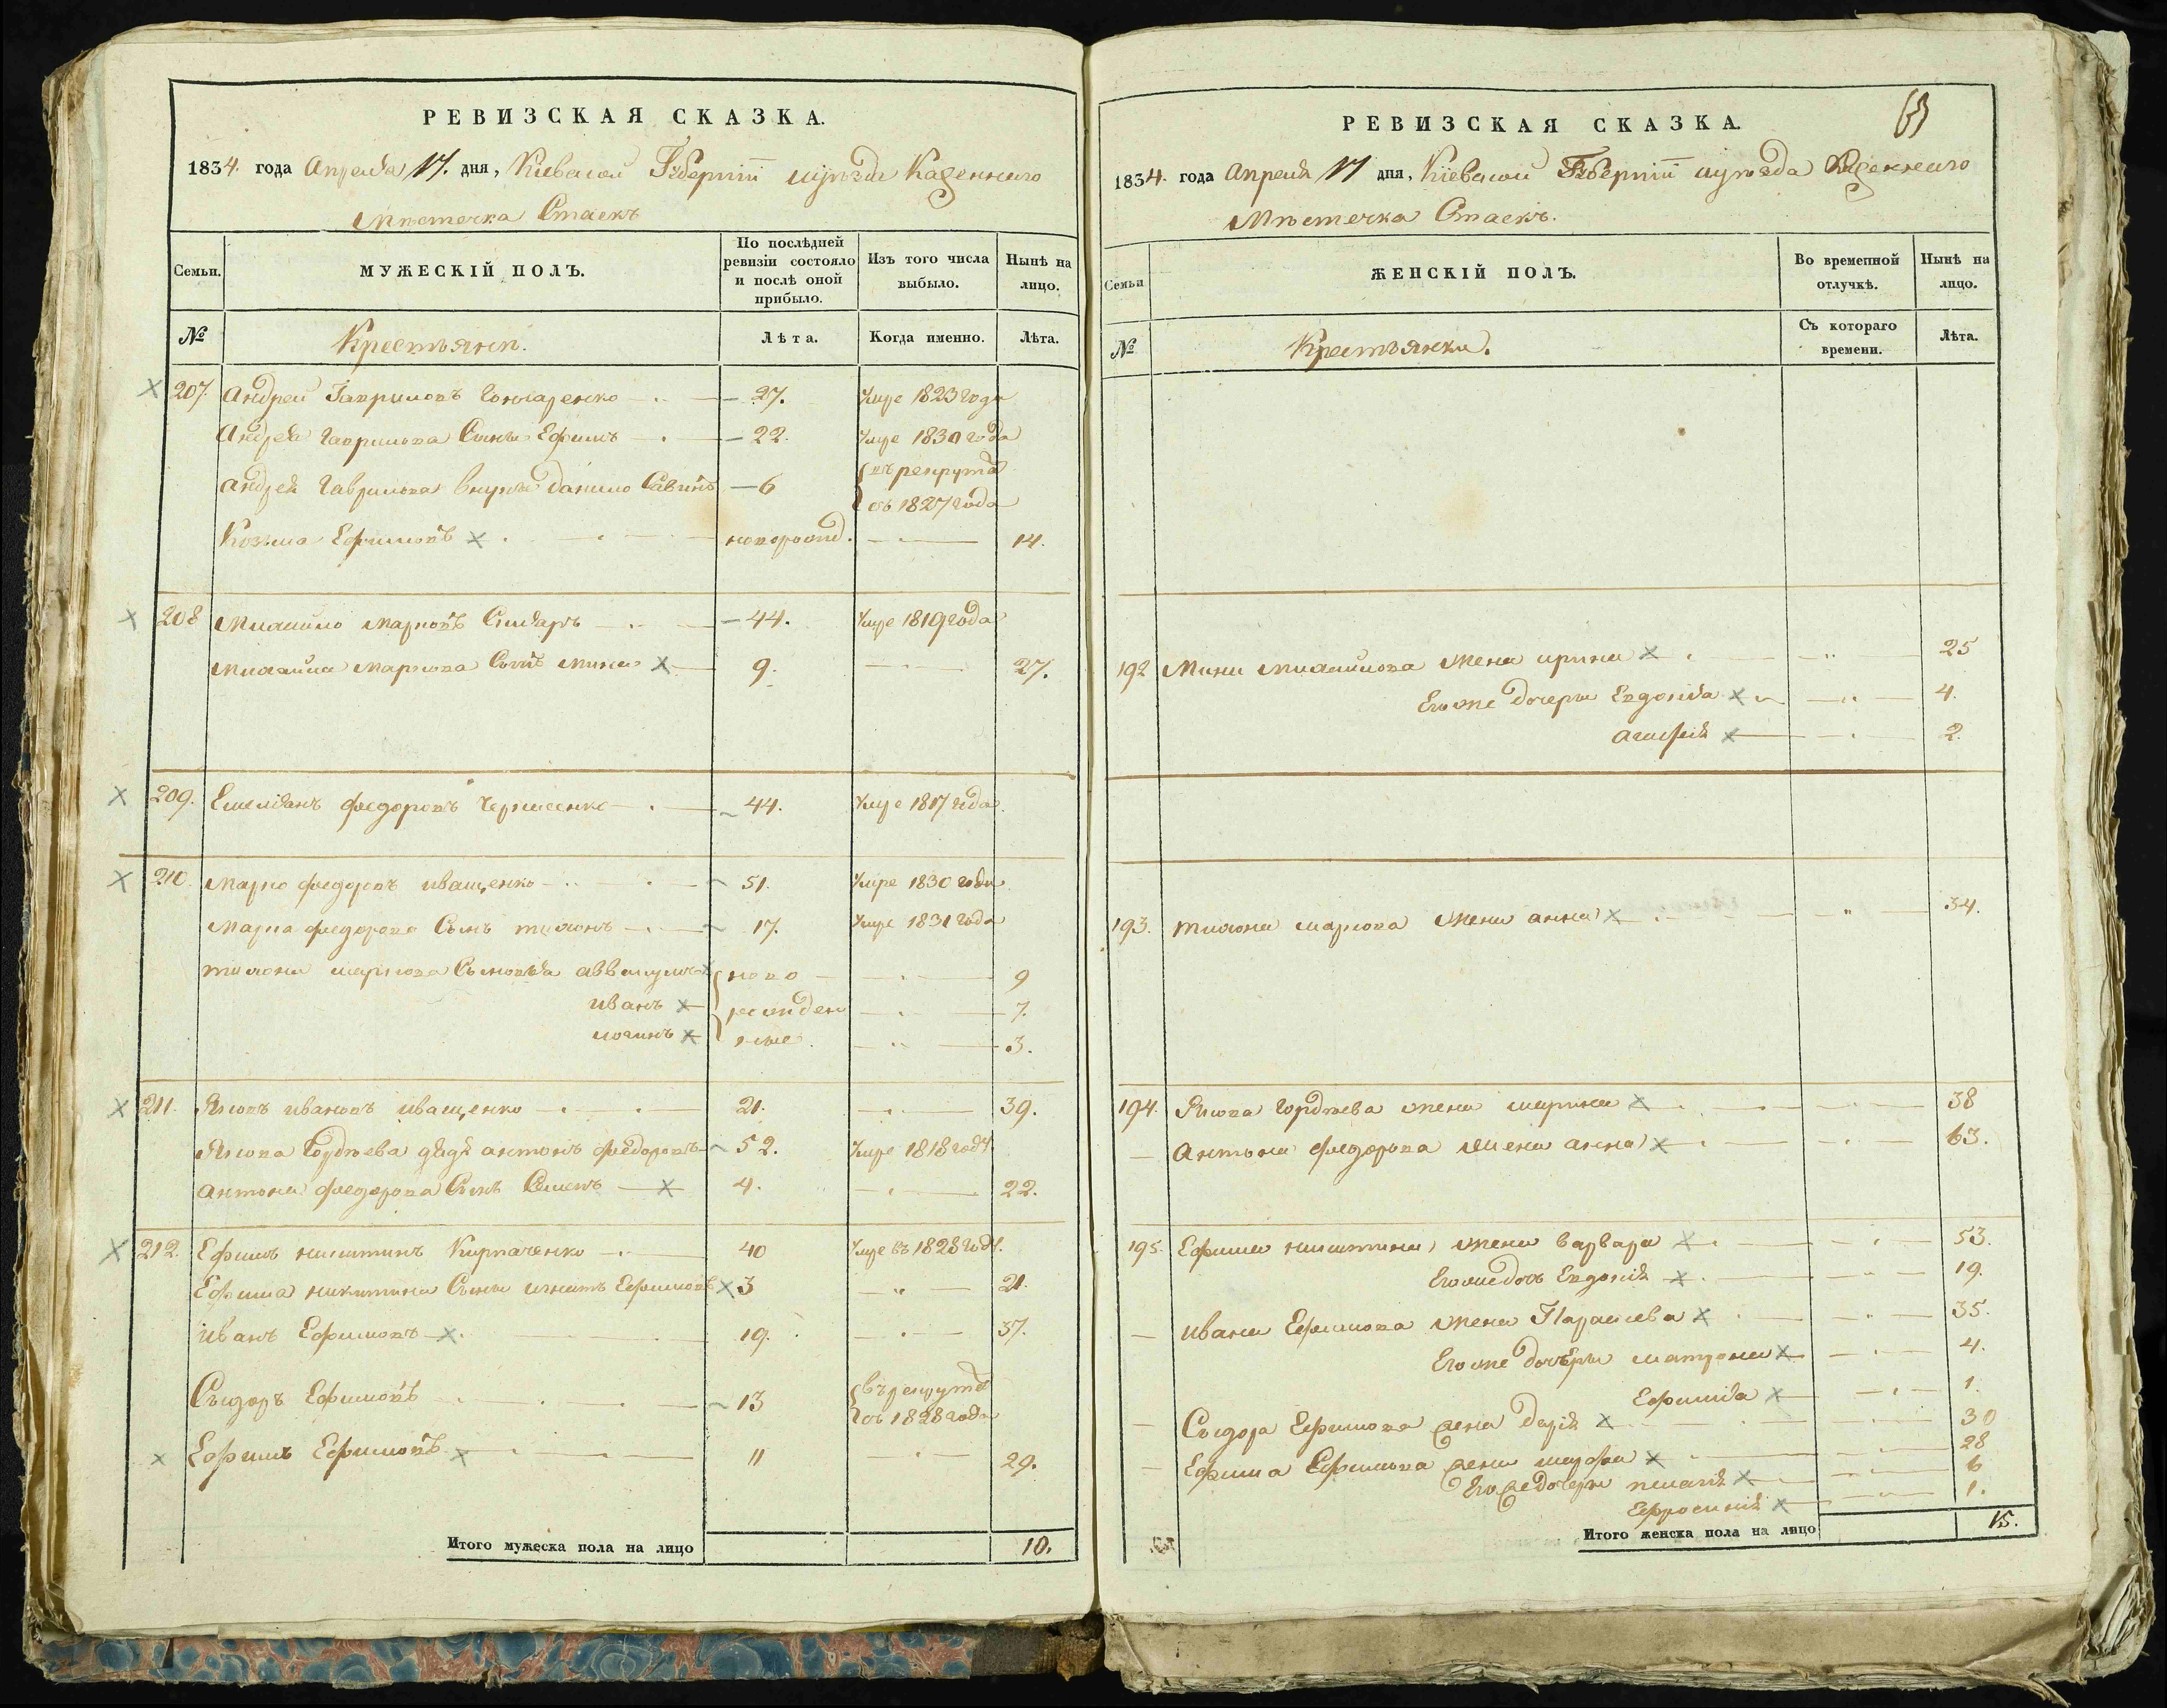 РЕВИЗСКАЯ СКАЗКА.
1834. года Апреля 17. дня, Киевской Губернiи уѣзда Казенного
Мѣстечка Стаекъ
Семьи.
МУЖЕСКІЙ ПОЛЪ.
По послѣдней ревизіи состояло и послѣ оной прибыло.
Изъ того числа выбыло.
Нынѣ на лицо.
№
Крестьяне.
Лѣта.
Когда именно.
Лѣта.
207. Андрей Гавриловъ Гончаренко 27. Умре 1823 года
Андрея Гаврилова Сынъ Ефимъ 22. Умре 1830 года
Андрея Гаврилова внукъ Данило Савинъ 6 въ рекруты
съ 1827 года
Козьма Ефимовъ новорожд. 14.
208 Михайло Марковъ 44. Умре 1819 года
Михайла Маркова Сынъ Мина 9. 27.
209. Емелiанъ Федоровъ 44. Умре 1817 года
210. Марко Федоровъ Иващенко 51. Умре 1830 года
Марка Федорова Сынъ Тихонъ 17. Умре 1831 года
Тихона Маркова Сыновья Аввакумъ ново 9
Иванъ рожден 7.
Логинъ ные 3.
211. Яковъ Ивановъ Иващенко 21. 39.
Якова Гордѣева дядя Антонъ Федоровъ 52. Умре 1818 году
Антона Федорова Сынъ Семенъ 4. 22.
212. Ефимъ Никитинъ Кирпаченко 40 Умре въ 1828 году.
Ефима Никитина Сынъ Игнатъ Ефимовъ 3 21.
Иванъ Ефимовъ 19. 37.
Сыдоръ Ефимовъ 13 въ рекруты
съ 1828 года
Ефимъ Ефимовъ 11 29.
Итого мужеска пола на лицо 10.
РЕВИЗСКАЯ СКАЗКА.
1834. года Апреля 17 дня, Кiевской Губернiи уѣзда Казенного
Мѣстечка Стаекъ.
Семьи
ЖЕНСКІЙ ПОЛЪ.
Во временной отлучкѣ.
Нынѣ на лицо.
№
Крестьянки.
Съ котораго времени.
Лѣта.
192 Мины Михайлова жена Ирина 25
Его же дочеры Евдокiя 4.
Агафiя 2.
193. Тихона Маркова жена Анна 34.
194. Якова Гордѣева жена Марина 38
Антона Федорова жена Анна 63.
195. Ефима Никитина жена Варвара 53.
Его же дочь Евдокiя 19.
Ивана Ефимова жена Параскева 35.
Его же дочѣры Матрона 4.
Ефимiя 1.
Сыдора Ефимова жена Дарiя 30
Ефима Ефимова жена Марфа 28
Его же дочеры 6
Ефросинiя 1.
Итого женска пола на лицо 15.